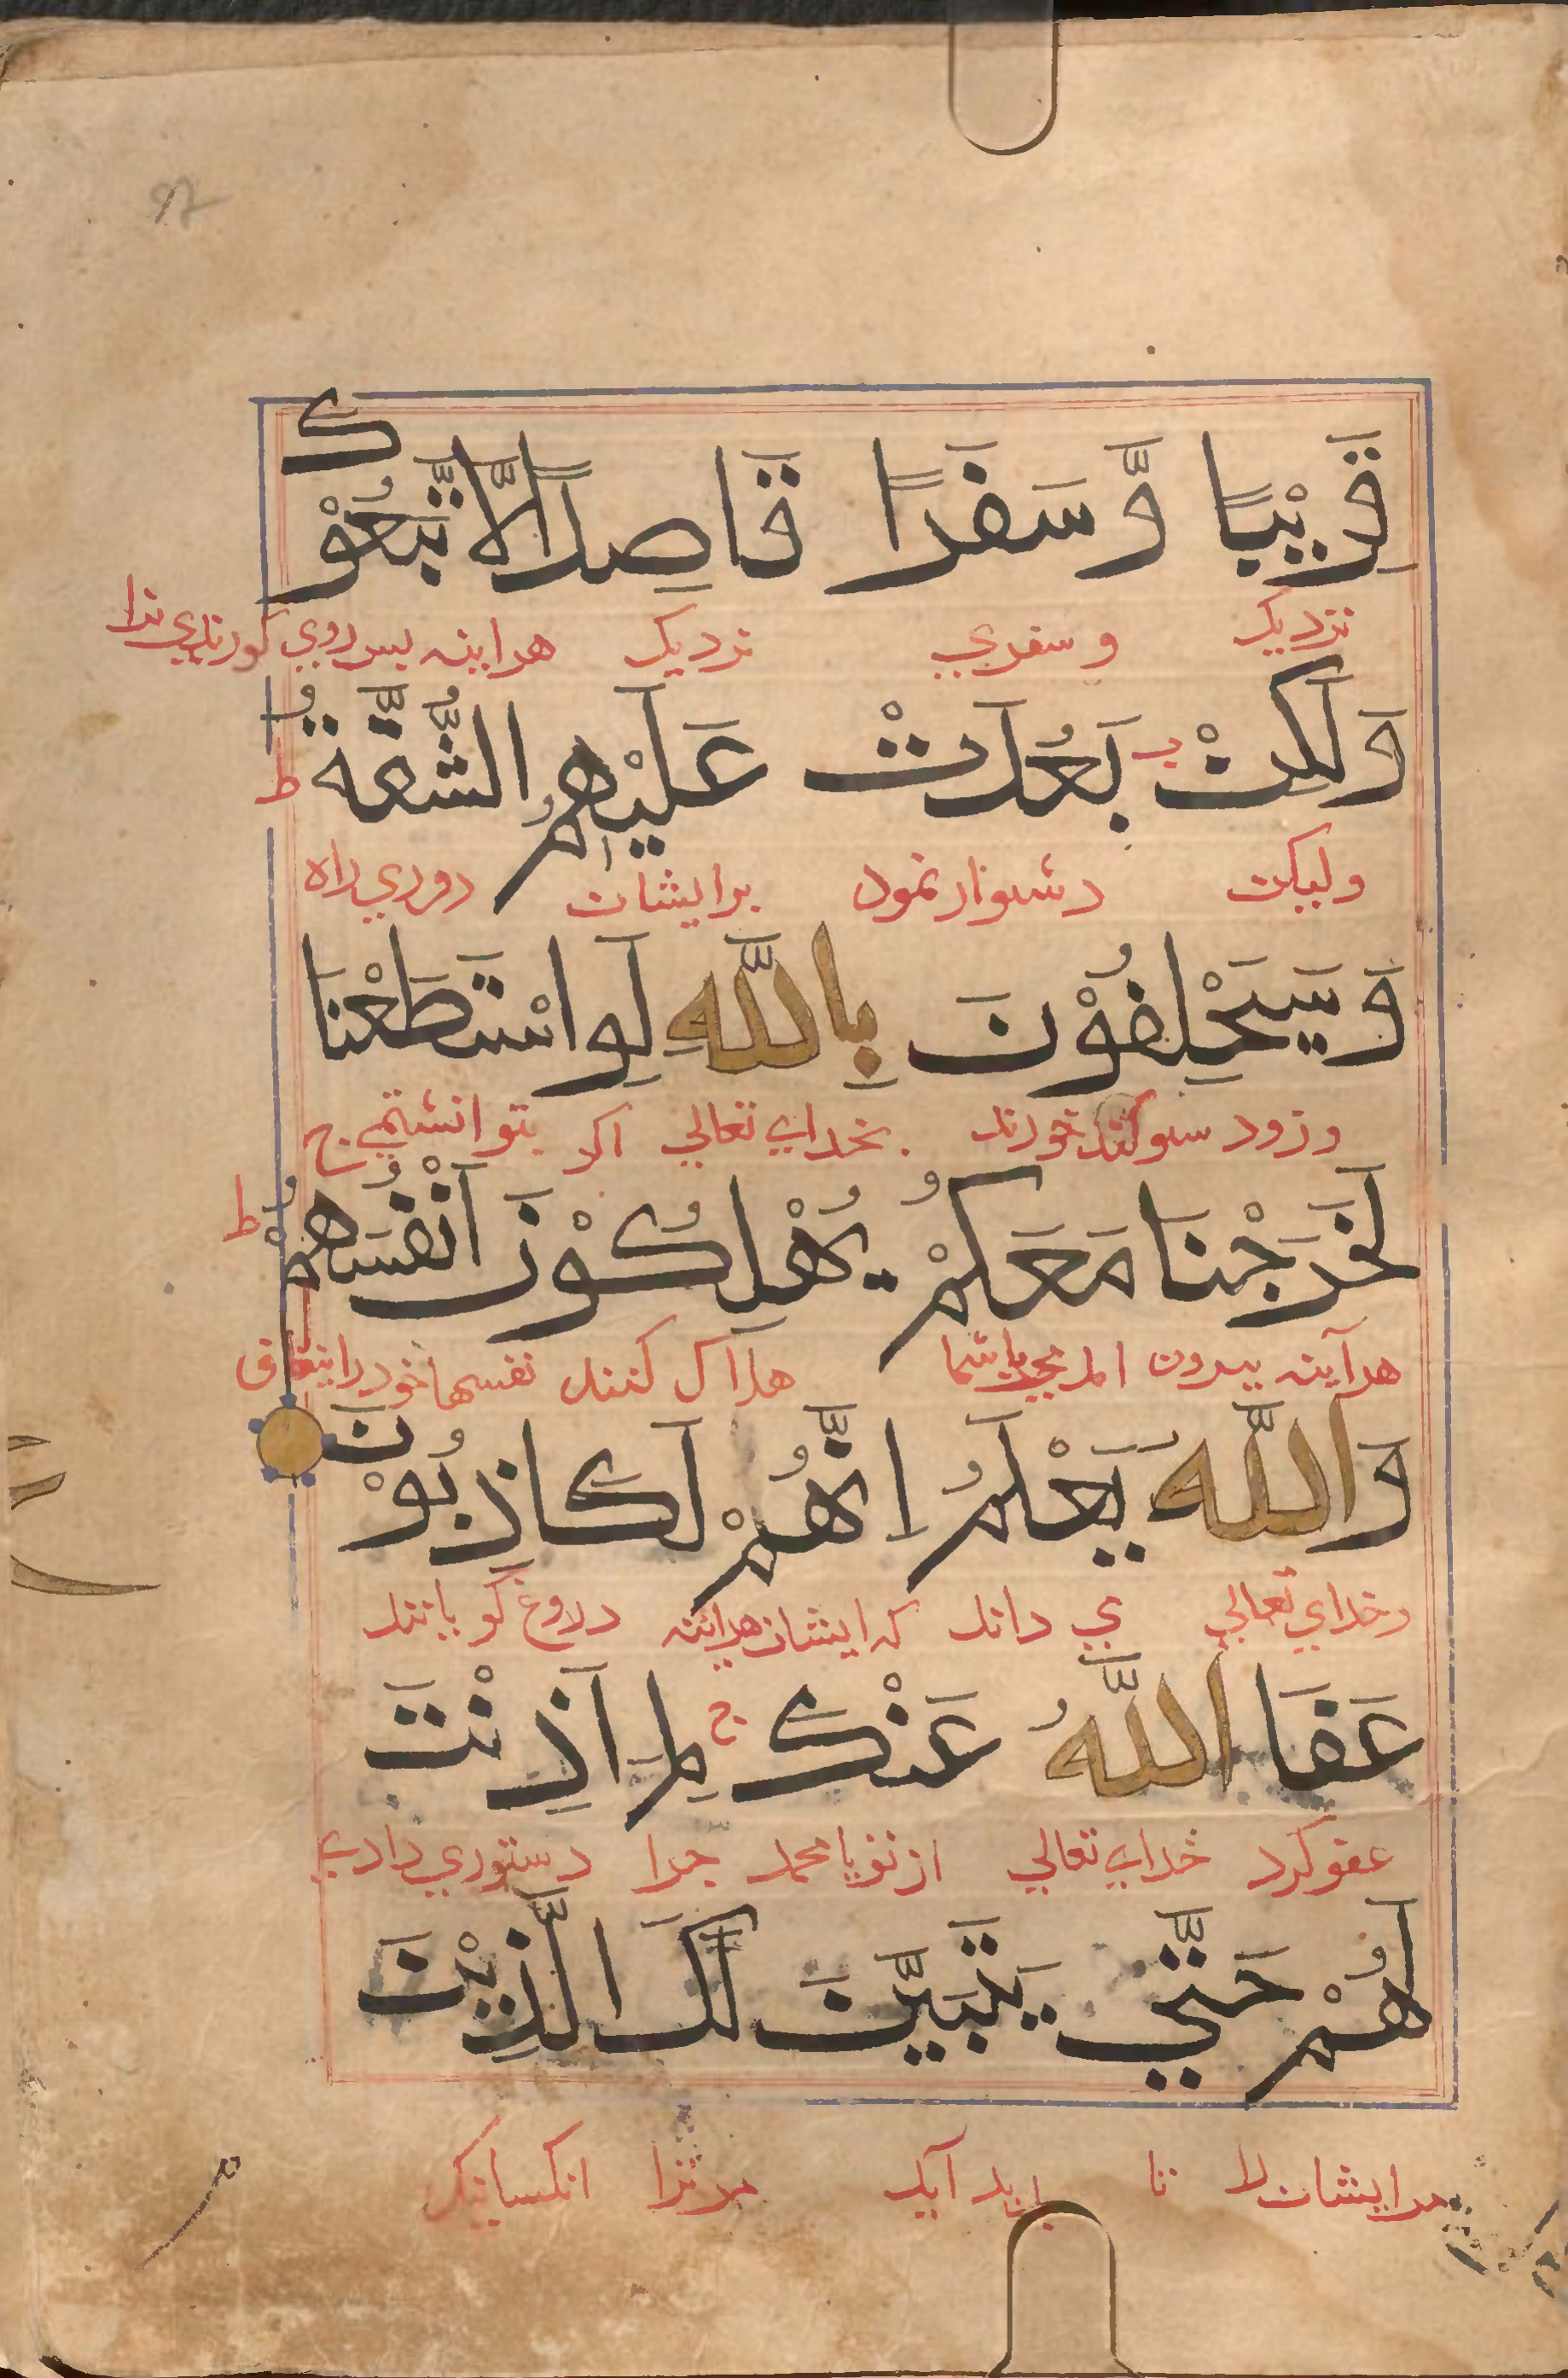 قَرِيْبًا وَّسَفَرًا قَاصِدًا لَّاتَّبَعُوْكَ
نزدیک و سفری نزدیک هراینه پس روی کردندی ترا
وَلٰكِنْ بَعُدَتْ عَلَيْهِمُ الشُّقَّةُ ط
ولیکن دشوار نمود برایشان دوری راه
وَسَيَحْلِفُوْنَ بِاللّٰهِ لَوِاسْتَطَعْنَا
و زود سوکند خورند بخدای تعالی اکر بتوانستمی ج
لَخَرَجْنَا مَعَكُمْ يُهْلِكُوْنَ اَنْفُسَهُمْ ط
هرآینه بیرون باشما هلاک کنند نفسهاخودرا بنفاق
وَاللّٰهُ يَعْلَمُ اِنَّهُمْ لَكَاذِبُوْنَ
وخدای تعالی می داند که ایشان هراینه دروغ کویانند
عَفَا اللّٰهُ عَنْكَ ج لِمَ اَذِنْتَ
عفو کرد خدای تعالی از تو یا محمد چرا دستوری دادی
لَهُمْ حَتّٰي يَتَبَيَّنَ لَكَ الَّذِيْنَ
مرایشان را تا پدید آید مر ترا انکسانیکه